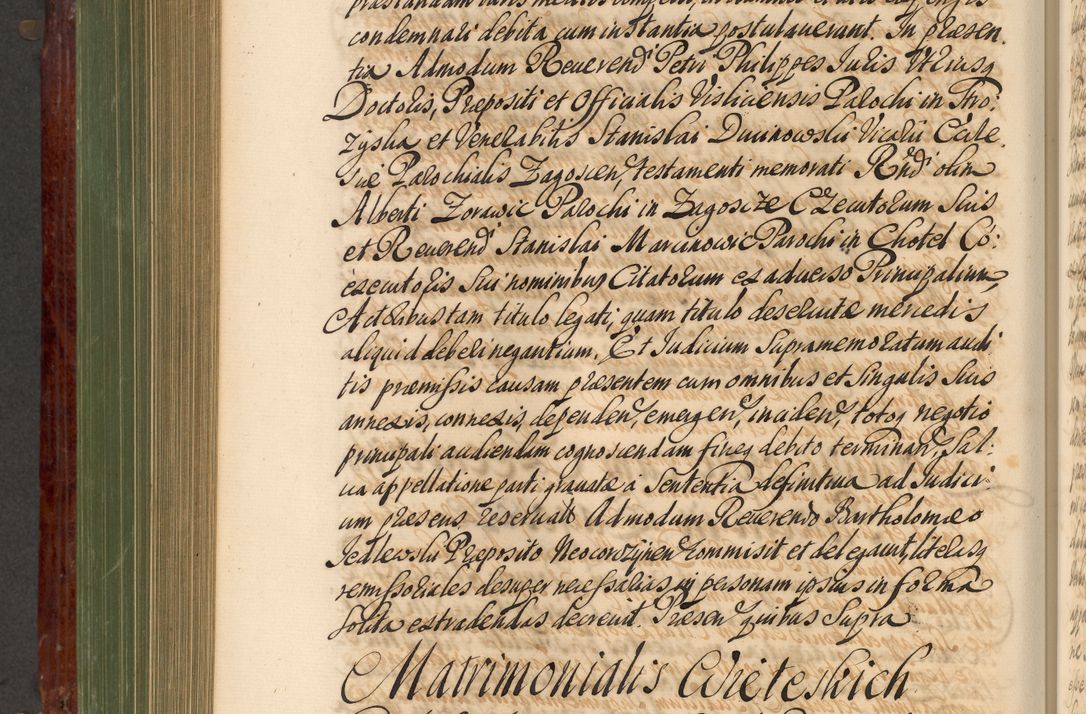 condemnari debita cum instantia postulauerunt. In præsen.
tia Admodum Reuerend Petri Philippes Iuris Vtriusq
Doctoris, Præpositi et Officialis Visliciensis Parochi in Stro:
zyska et Venerabilis Stanislai Duninowski Vicarii Eccle
siæ Parochialis Zagoscen, testamenti memorati Rndi olim
Alberti Zorawic Parochi in Zagosize Executorum Suis
et Reuerend Stanislai Marcinowic Parochi in Chotel Co:
executoris sui nominibus Citatorum ex aduerso Principalium,
Actoribus tam titulo legati, quam titulo deseruitæ mercedis
aliquid deberi negantium. Et Iudicium Supramemoratum audi
tis præmissis causam præsentem cum omnibus et Singulis Suis
annexis, connexis, dependen, emergen, inciden, totoq negotio
principali audiendam cognoscendam fineq debito terminan, Sal:
ua appellatione parti grauatæ a Sententia definitiua ad Iudici:
um præsens reseruato Admodum Reuerendo Bartholomæo
Iedlewski Præposito Neocorzynen commisit et delegauit, literasq
remissoriales desuper necessarias in personam ipsius in forma
solita extradendas decreuit. Præsen quibus Supra
Matrimonialis Wieteskich